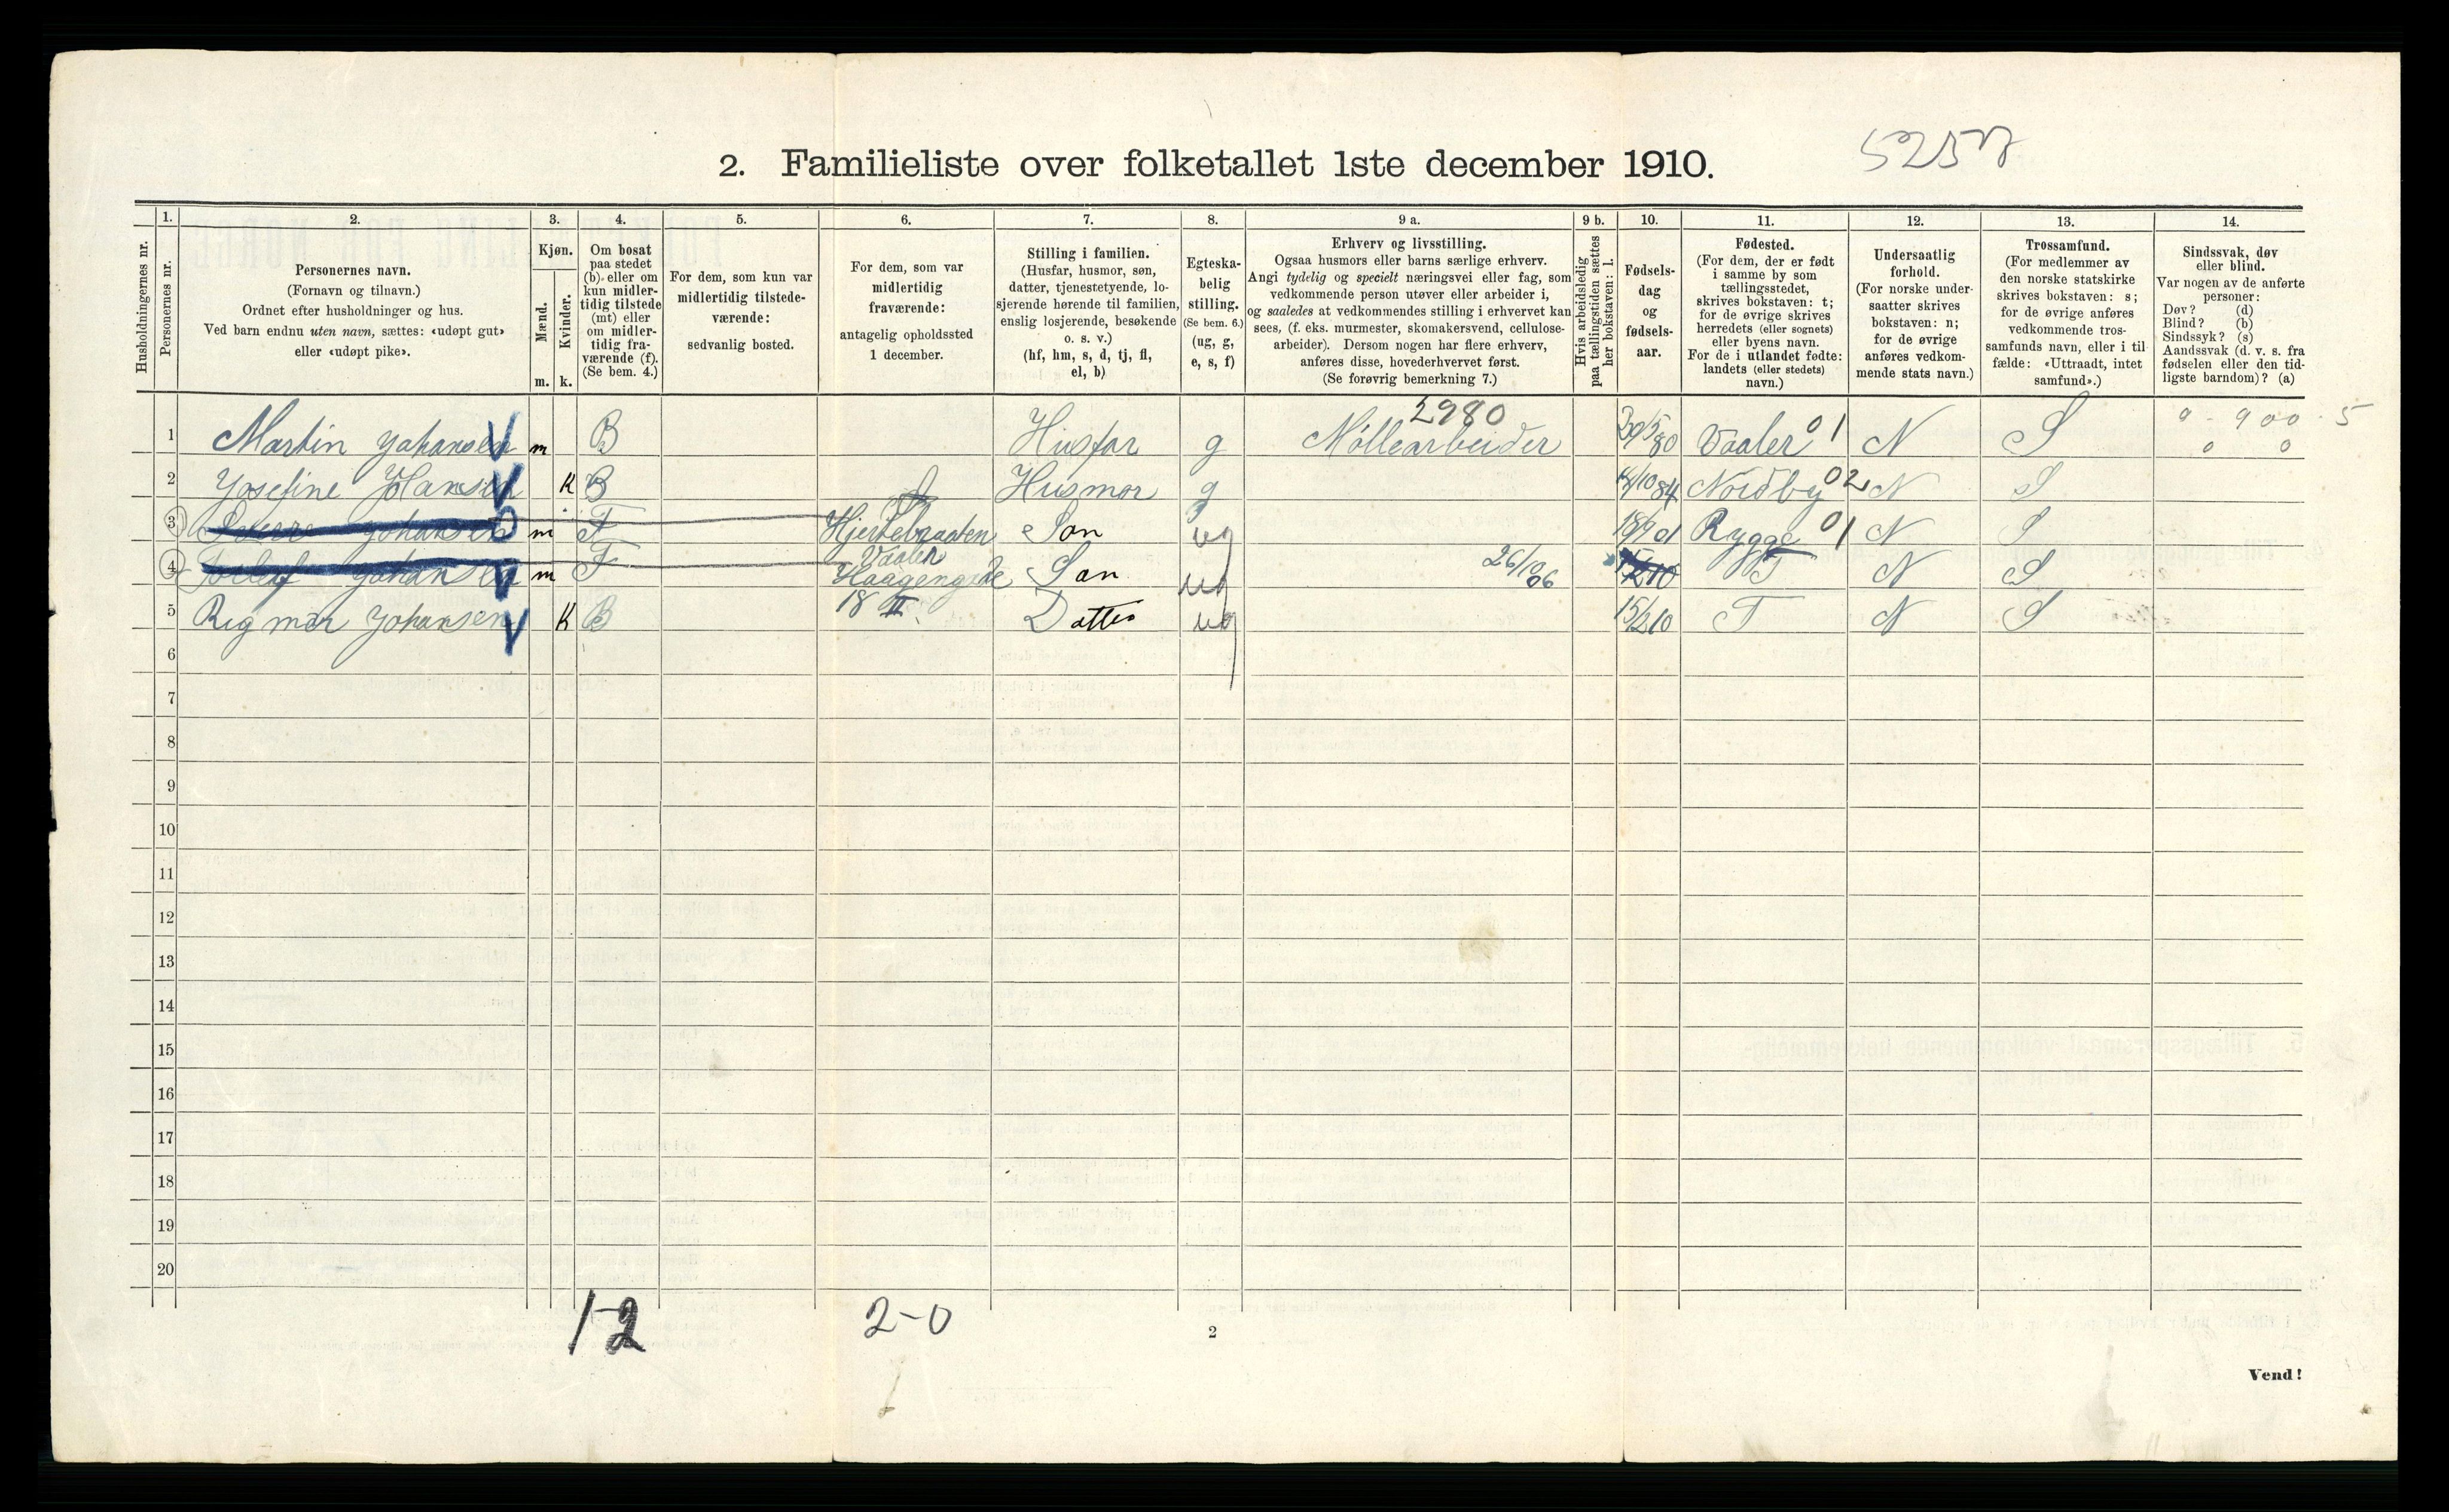 5252
2. Familieliste over folketallet 1ste december 1910.
Husholdningernes nr.
1. Personernes nr.
2.
Personernes navn.
(Fornavn og tilnavn.)
Ordnet efter husholdninger og hus.
Ved barn endnu uten navn, sættes: «udøpt gut»
eller «udøpt pike».
3.
Kjøn.
Mænd. Kvinder.
m. k.
4.
Om bosat
paa stedet
(b) eller om
kun midler-
tidig tilstede
(mt) eller
om midler-
tidig fra-
værende (f).
(Se bem. 4.)
5.
For dem, som kun var
midlertidig tilstede-
værende:
sedvanlig bosted.
6.
For dem, som var
midlertidig
fraværende:
antagelig opholdssted
1 december.
7.
Stilling i familien.
(Husfar, husmor, søn,
datter, tjenestetyende, lo-
sjerende hørende til familien,
enslig losjerende, besøkende
o. s. v.)
(hf, hm, s, d, tj, fl,
el, b)
8.
Egteska-
belig
stilling.
(Se bem. 6.)
(ug, g,
e, s, f)
9 a.
Erhverv og livsstilling.
Ogsaa husmors eller barns særlige erhverv.
Angi tydelig og specielt næringsvei eller fag, som
vedkommende person utøver eller arbeider i,
og saaledes at vedkommendes stilling i erhvervet kan
sees, (f. eks. murmester, skomakersvend, cellulose-
arbeider). Dersom nogen har flere erhverv,
anføres disse, hovederhvervet først.
(Se forøvrig bemerkning 7.)
9 b.
Hvis arbeidsledig
paa tællingstiden sættes
her bokstaven: l.
10.
Fødsels-
dag
og
fødsels-
aar.
11.
Fødested.
(For dem, der er født
i samme by som
tællingsstedet,
skrives bokstaven: t;
for de øvrige skrives
herredets (eller sognets)
eller byens navn.
For de i utlandet fødte:
landets (eller stedets)
navn.)
12.
Undersaatlig
forhold.
(For norske under-
saatter skrives
bokstaven: n;
for de øvrige
anføres vedkom-
mende stats navn.)
13.
Trossamfund.
(For medlemmer av
den norske statskirke
skrives bokstaven: s;
for de øvrige anføres
vedkommende tros-
samfunds navn, eller i til-
fælde: «Uttraadt, intet
samfund».)
14.
Sindssvak, døv
eller blind.
Var nogen av de anførte
personer:
Døv? (d)
Blind? (b)
Sindssyk? (s)
Aandssvak (d. v. s. fra
fødselen eller den tid-
ligste barndom)? (a)
2980
1 Martin Johansen m B Husfar g Møllearbeider 30/5 80 Vaaler 01 N S 9 - 900 - 5
0 0
2 Josefine Johansen K B Husmor g 14/10 84 Nordby 02 N S
3 Sverre Johansen m F Hjertebraaten Søn ug 18/9 01 Rygge 01 N S
Vaaler
4 Johansen m F Haagengade Søn ug 26/10 06 T N S
18 II
5 Rigmor Johansen K B Datter ug 15/2 10 T N S
6
7
8
9
10
11
12
13
14
15
16
17
18
19
20
1-2
2-0
2
Vend!